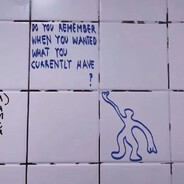 DO YOU REMEMBER
WHEN YOU WANTED
WHAT YOU
CURRENTLY HAVE
?